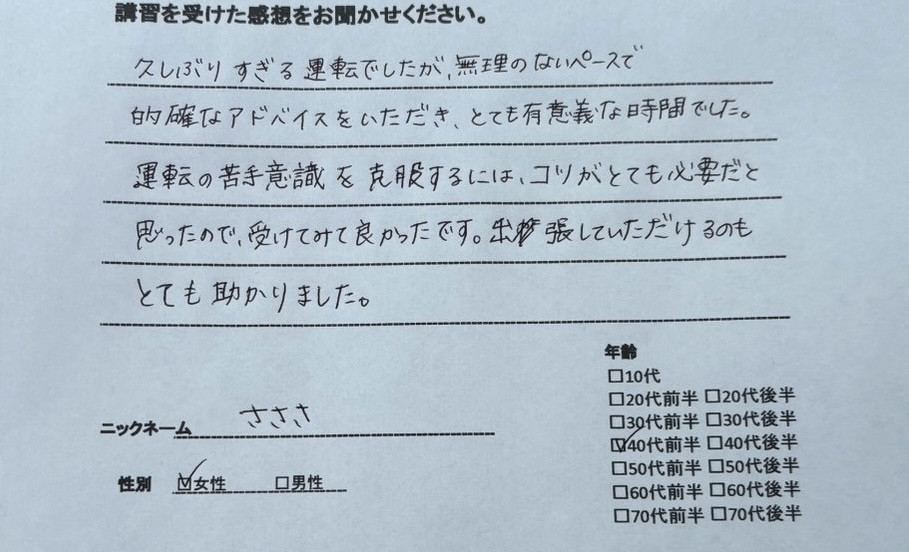 講習を受けた感想をお聞かせください。
久しぶりすぎる運転でしたが、無理のないペースで
的確なアドバイスをいただき、とても有意義な時間でした。
運転の苦手意識を克服するには、コツがとても必要だと
思ったので、受けてみて良かったです。出張していただけるのも
とても助かりました。
ニックネーム さささ
性別 ☑女性 □男性
年齢
□10代
□20代前半 □20代後半
□30代前半 □30代後半
☑40代前半 □40代後半
□50代前半 □50代後半
□60代前半 □60代後半
□70代前半 □70代後半